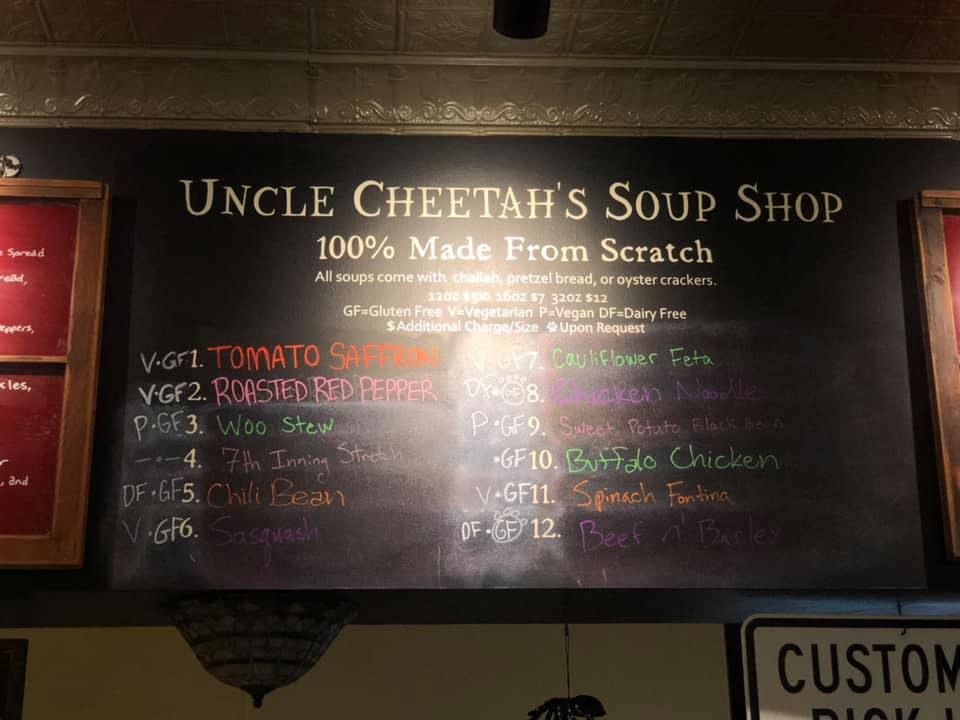 UNCLE CHEETAH'S SOUP SHOP
100% Made From Scratch
All soups come with challah, pretzel bread, or oyster crackers.
12oz 16oz $7 32oz $12
GF=Gluten Free V=Vegetarian P=Vegan DF=Dairy Free
$ Additional Charge/Size Upon Request
V·GF 1. TOMATO SAFFRON
V·GF 2. ROASTED RED PEPPER
P·GF 3. Woo Stew
—·— 4. 7th Inning Stretch
DF·GF 5. Chili Bean
V·GF 6. Sasquash
V·GF 7. Cauliflower Feta
DF·GF 8. Chicken Noodle
P·GF 9. Sweet Potato Black Bean
·GF 10. Buffalo Chicken
V·GF 11. Spinach Fontina
DF·GF 12. Beef n' Barley
Spread
eppers,
and
CUSTOM